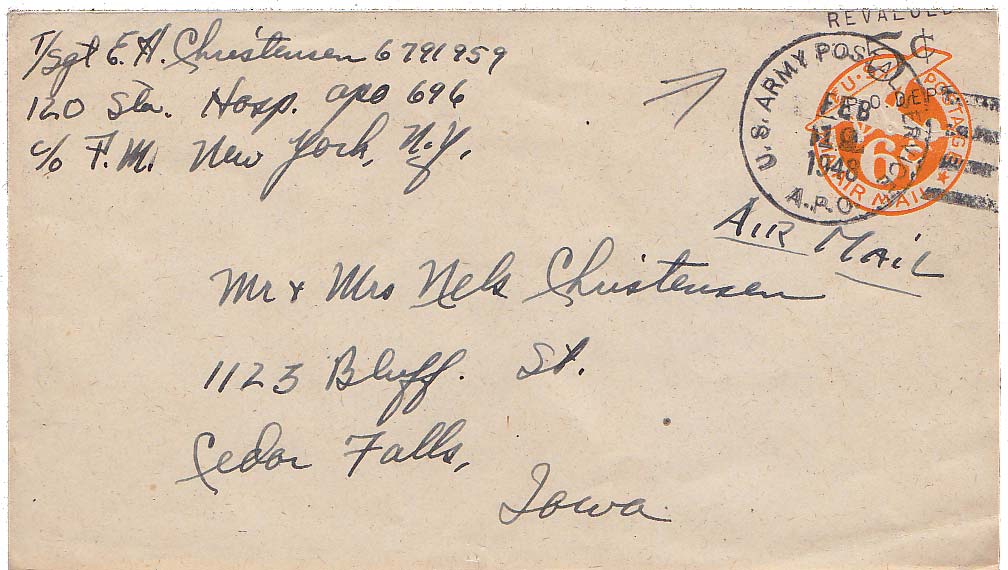 T/Sgt E. H. Christensen 6791959
120 Sta. Hosp. apo 696
c/o P.M. New York, N.Y.
REVALUED
5¢
P.O. DEPT
U.S. ARMY POSTAL SERVICE
FEB
1948
A.P.O.
U.S. POSTAGE
6
AIR MAIL
AIR MAIL
Mr & Mrs Nels Christensen
1123 Bluff. St.
Cedar Falls,
Iowa